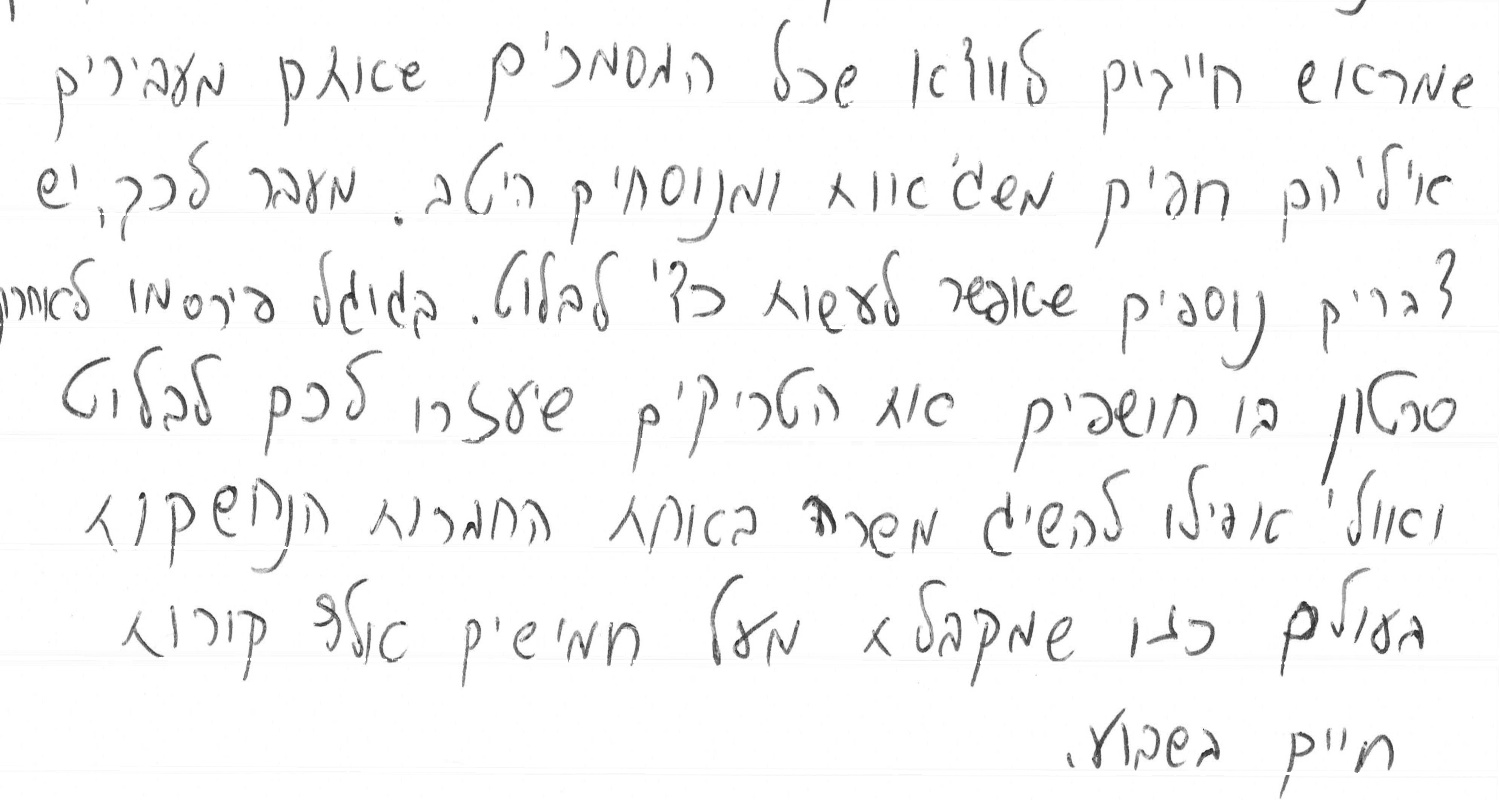 שמראש חייבים לוודא שכל המסמכים שאותם מעבירים
אליהם חפים משגיאות ומנוסחים היטב. מעבר לכך, יש
דברים נוספים שאפשר לעשות כדי לבלוט. בגוגל פירסמו לאחרון
סרטון בו חושפים את הטריקים שיעזרו לכם לבלוט
ואולי אפילו להשיג משרה באחת החברות הנחשקות
בעולם כזו שמקבלת מעל חמישים אלף קורות
חיים בשבוע.